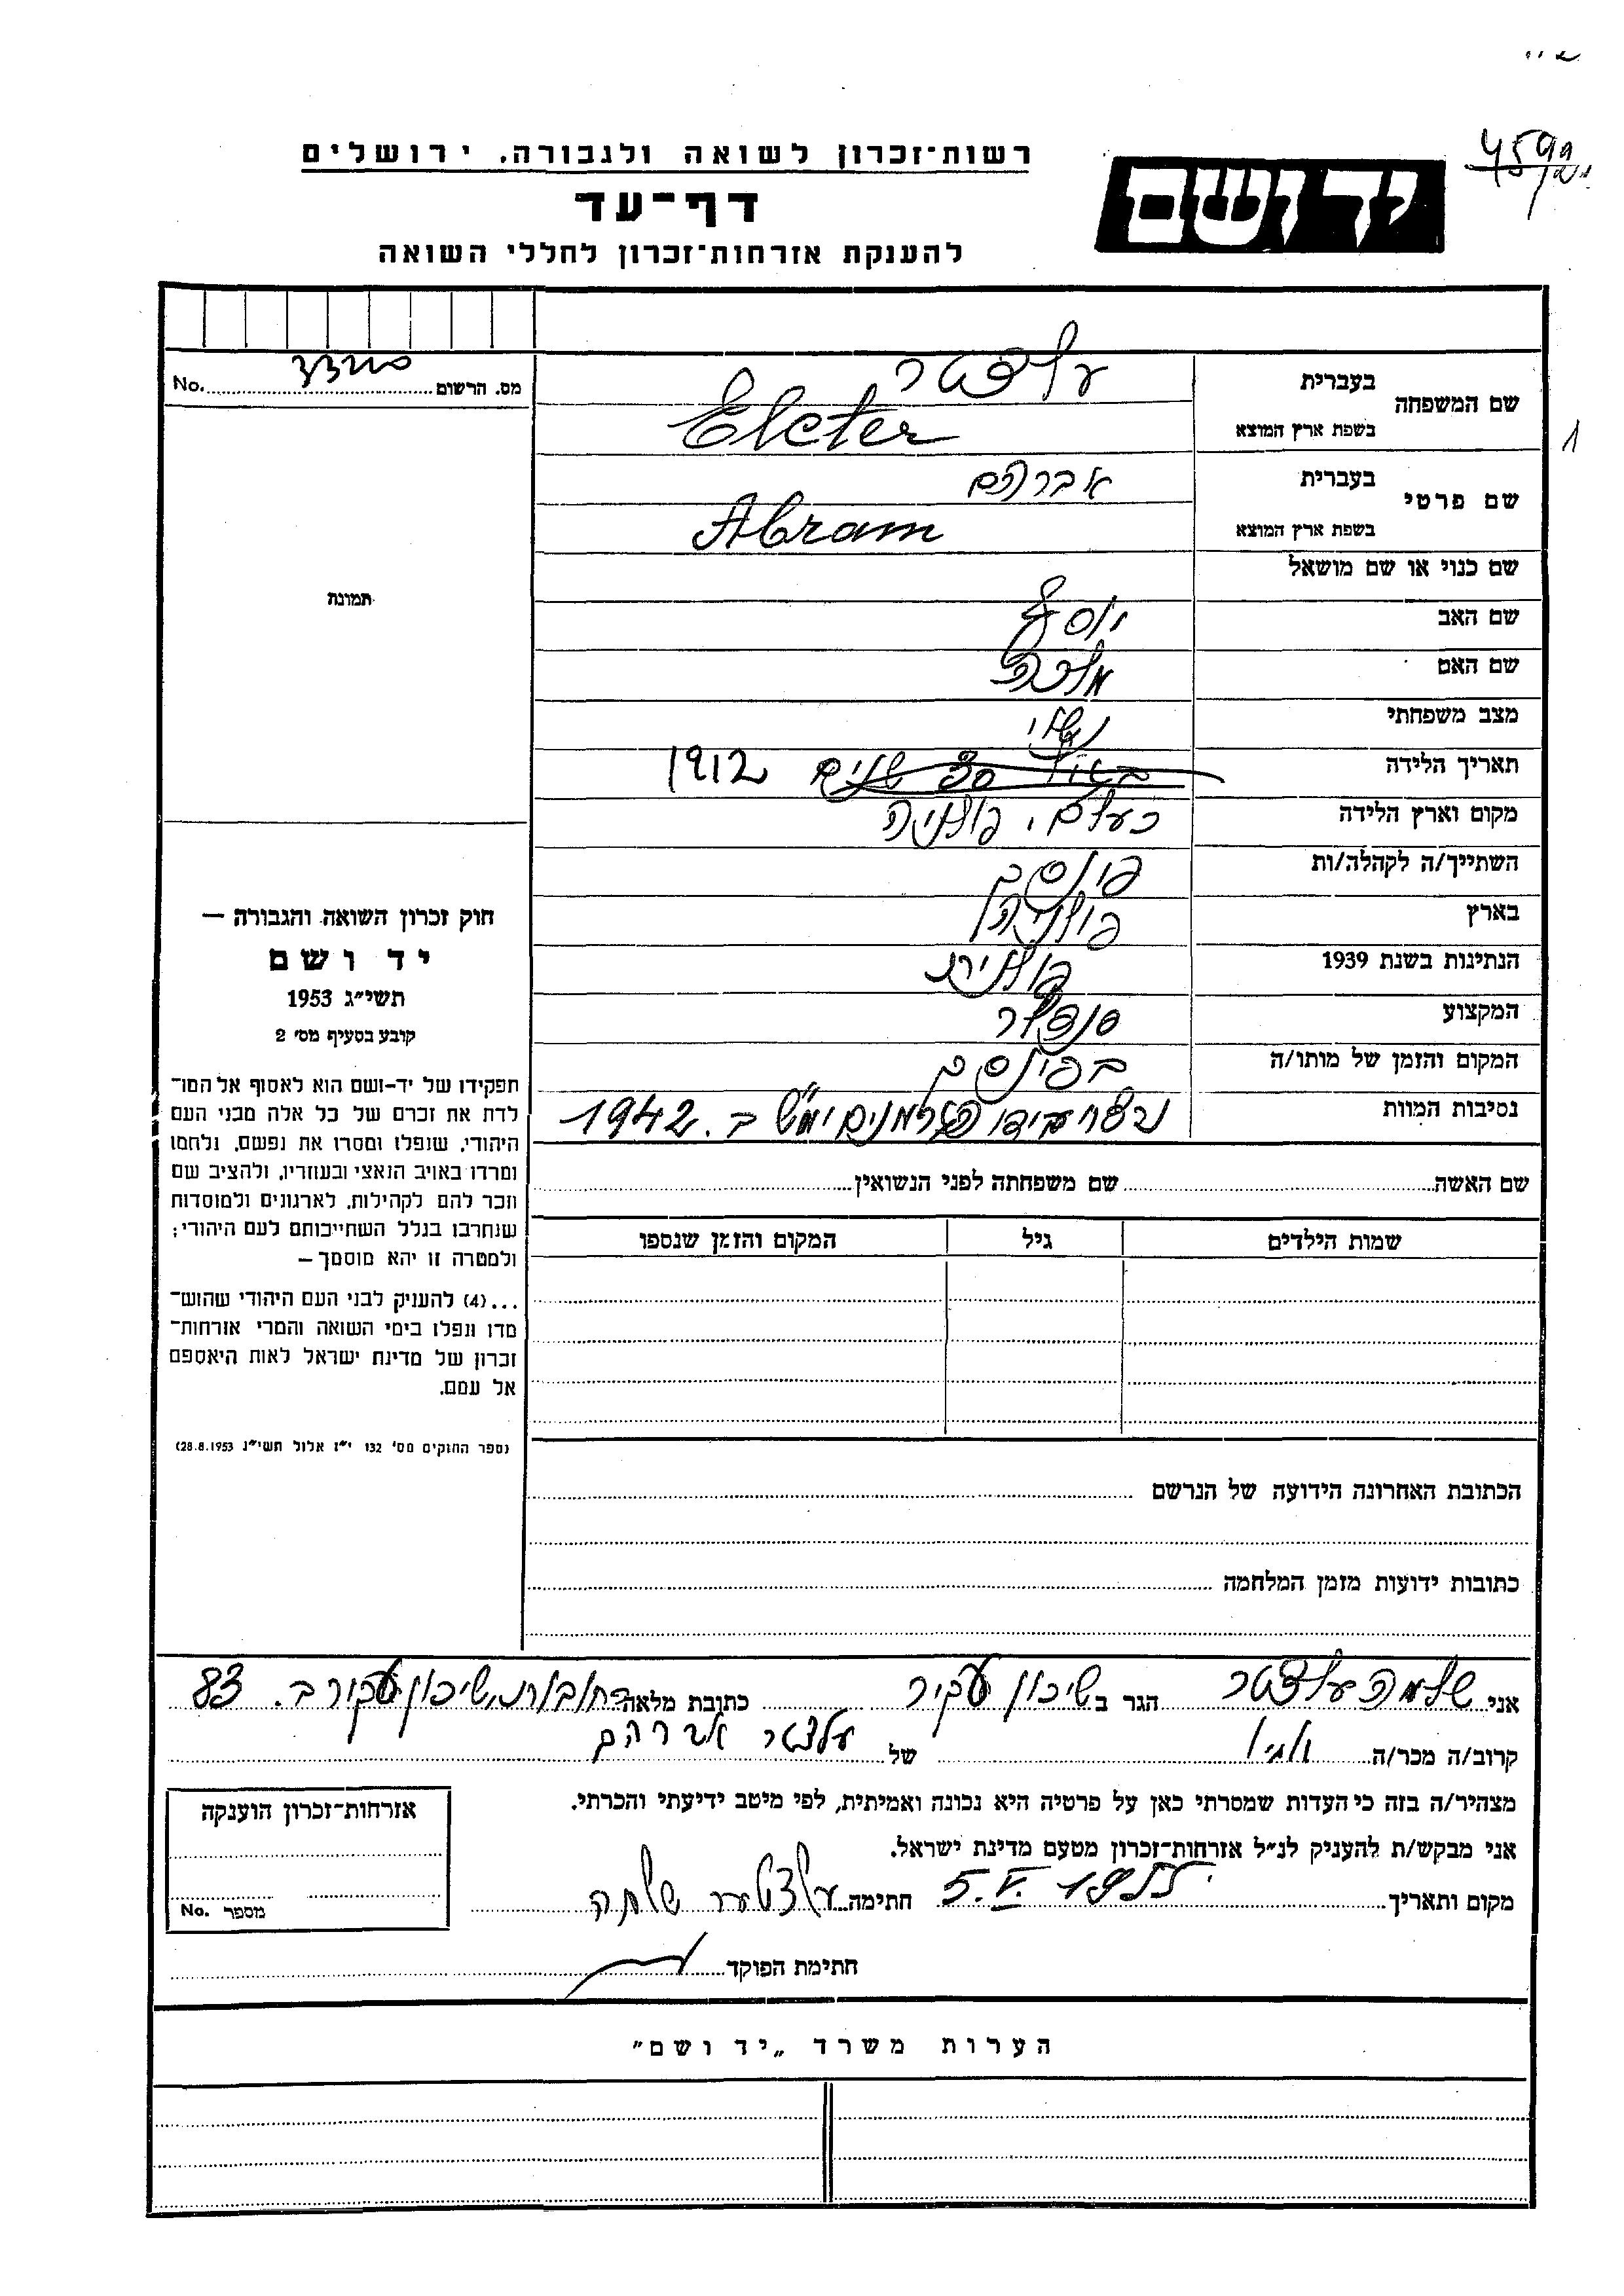 רשות־זכרון לשואה ולגבורה, ירושלים
יד ושם
דף־עד
להענקת אזרחות־זכרון לחללי השואה
שם המשפחה
בעברית עלצטר
בשפת ארץ המוצא Elcter
שם פרטי
בעברית אברהם
בשפת ארץ המוצא Abram
שם כנוי או שם מושאל
שם האב יוסף
שם האם מלכה
מצב משפחתי נשוי
תאריך הלידה 30 שנים 1912
מקום וארץ הלידה פולניה
השתייך/ה לקהלה/ות פינסק
בארץ פולניה
הנתינות בשנת 1939 פולנית
המקצוע סנדלר
המקום והזמן של מותו/ה בפינסק
נסיבות המוות נרצח בידי הגרמנים ימ"ש ב. 1942
שם האשה שם משפחתה לפני הנשואין
שמות הילדים גיל המקום והזמן שנספו
הכתובת האחרונה הידועה של הנרשם
כתובות ידועות מזמן המלחמה
מס. הרשום No.
תמונה
חוק זכרון השואה והגבורה —
יד ושם
תשי"ג 1953
קובע בסעיף מס׳ 2
תפקידו של יד-ושם הוא לאסוף אל המו־
לדת את זכרם של כל אלה מבני העם
היהודי, שנפלו ומסרו את נפשם, נלחמו
ומרדו באויב הנאצי ובעוזריו, ולהציב שם
וזכר להם לקהילות, לארגונים ולמוסדות
שנחרבו בגלל השתייכותם לעם היהודי;
ולמטרה זו יהא מוסמך —
...(4) להעניק לבני העם היהודי שהוש־
מדו ונפלו בימי השואה והמרי אזרחות־
זכרון של מדינת ישראל לאות היאספם
אל עמם.
(ספר החוקים מס׳ 132 י"ז אלול תשי"ג 28.8.1953)
אני שלמה עלצטר הגר ב שיכון עקיר כתובת מלאה רחובות, שיכון עקיר ב. 83
קרוב/ה מכר/ה אחיו של עלצטר אברהם
מצהיר/ה בזה כי העדות שמסרתי כאן על פרטיה היא נכונה ואמיתית, לפי מיטב ידיעתי והכרתי.
אני מבקש/ת להעניק לנ"ל אזרחות־זכרון מטעם מדינת ישראל.
מקום ותאריך 5.V.1955 חתימה עלצטער שלמה
חתימת הפוקד
אזרחות־זכרון הוענקה
מספר No.
הערות משרד „יד ושם"